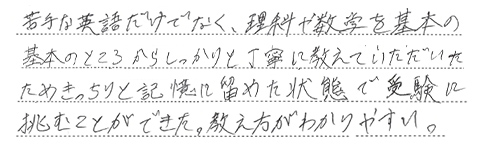 苦手な英語だけでなく、理科や数学を基本の
基本のところからしっかりと丁寧に教えていただいた
ためきっちりと記憶に留めた状態で受験に
挑むことができた。教え方がわかりやすい。